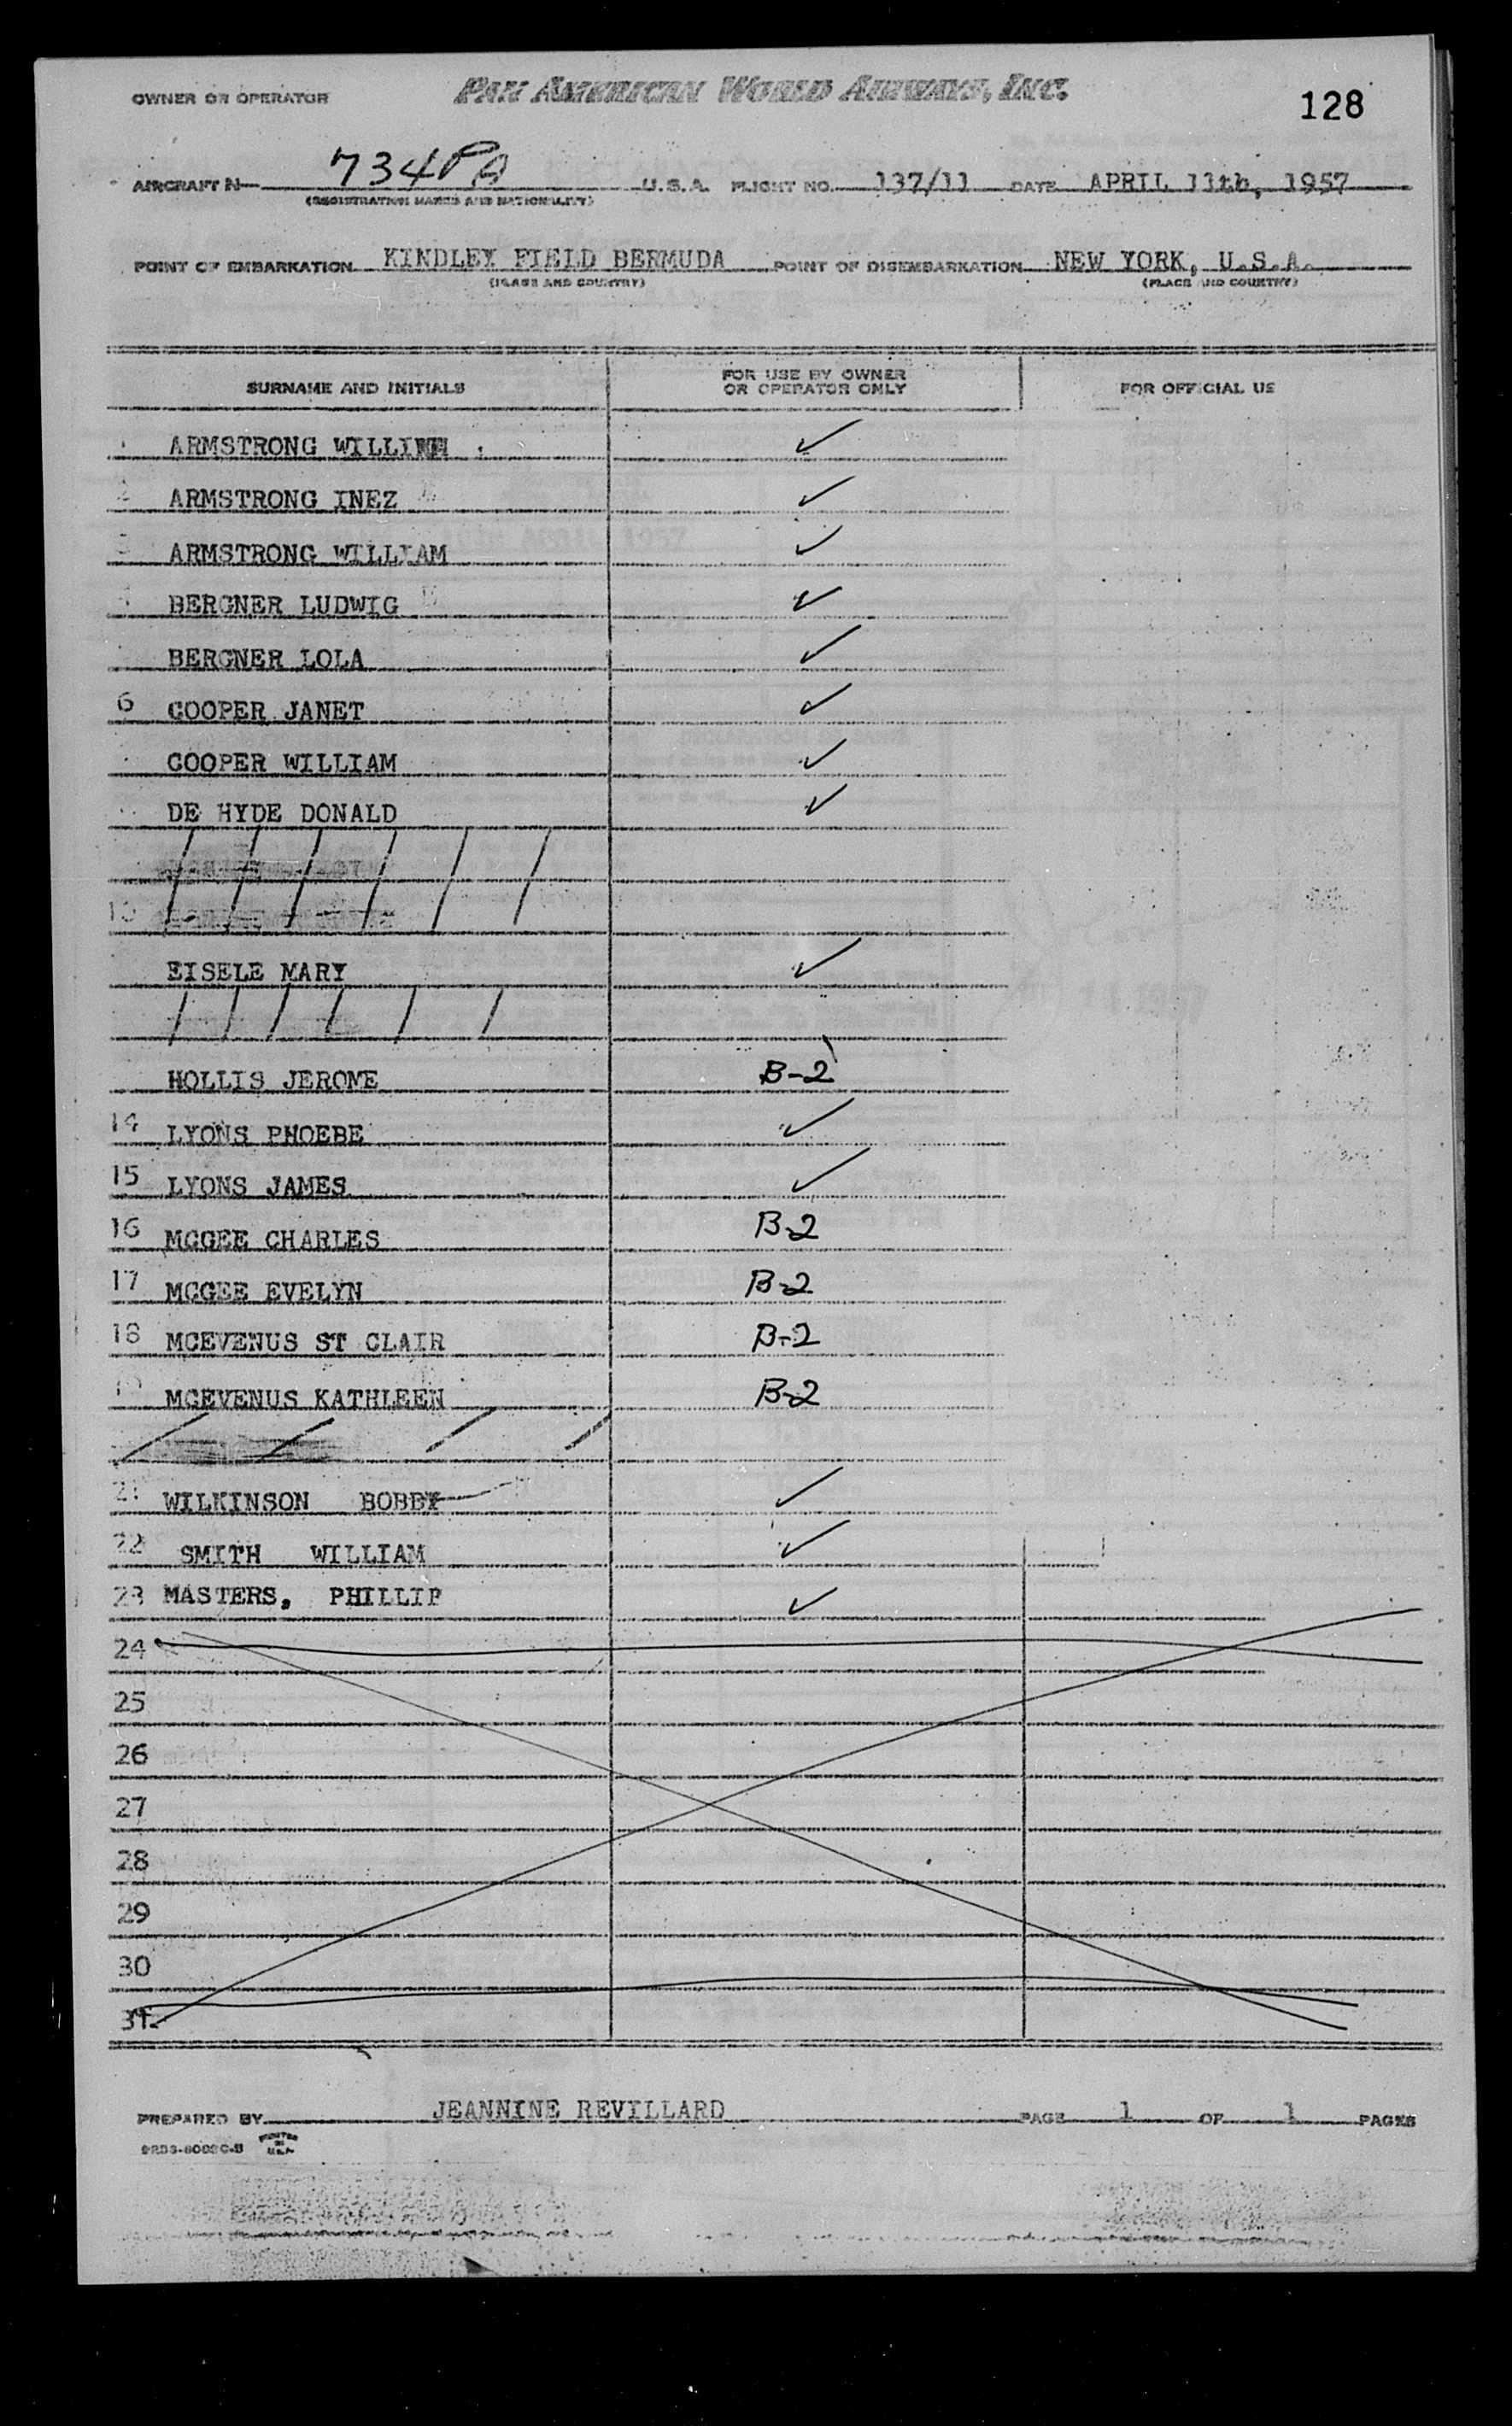 OWNER OR OPERATOR PAN AMERICAN WORLD AIRWAYS, INC. 128
AIRCRAFT N 734PA U.S.A. FLIGHT NO. 137/11 DATE APRIL 11th, 1957
(REGISTRATION MARKS AND NATIONALITY)
POINT OF EMBARKATION KINDLEY FIELD BERMUDA POINT OF DISEMBARKATION NEW YORK, U.S.A.
(PLACE AND COUNTRY) (PLACE AND COUNTRY)
SURNAME AND INITIALS FOR USE BY OWNER OR OPERATOR ONLY FOR OFFICIAL US
ARMSTRONG ✓
2 ARMSTRONG INEZ ✓
3 ARMSTRONG WILLIAM ✓
BERGNER LUDWIG ✓
BERGNER LOLA ✓
6 COOPER JANET ✓
COOPER WILLIAM ✓
DE HYDE DONALD ✓
10
EISELE MARY ✓
HOLLIS JEROME B-2
14 LYONS PHOEBE ✓
15 LYONS JAMES ✓
16 MCGEE CHARLES B-2
17 MCGEE EVELYN B-2
18 MCEVENUS ST CLAIR B-2
19 MCEVENUS KATHLEEN B-2
21 WILKINSON BOBBY ✓
22 SMITH WILLIAM ✓
23 MASTERS, PHILLIP ✓
24
25
26
27
28
29
30
31
PREPARED BY JEANNINE REVILLARD PAGE 1 OF 1 PAGES
PRINTED IN U.S.A.